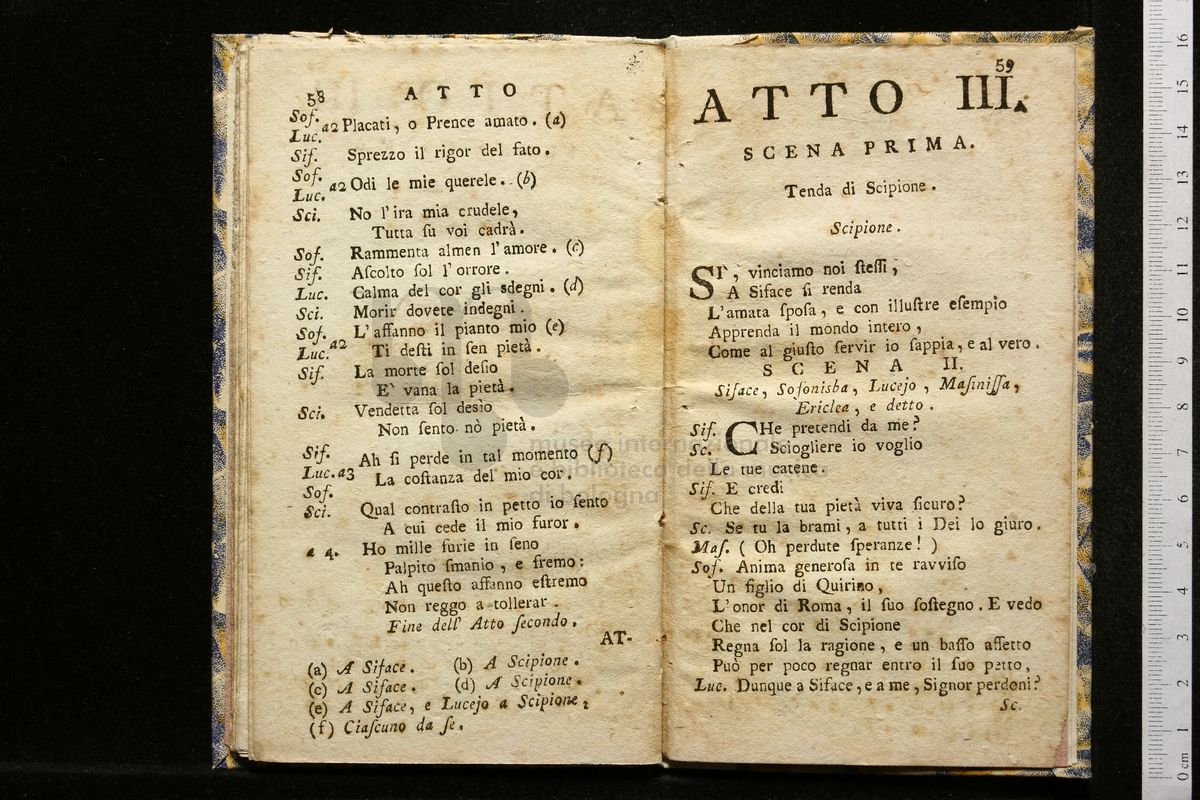 58 ATTO
Sof.
Luc. a2 Placati, o Prence amato. (a)
Sif. Sprezzo il rigor del fato.
Sof.
Luc. a2 Odi le mie querele. (b)
Sci. No l'ira mia crudele,
Tutta ſu voi cadrà.
Sof. Rammenta almen l'amore. (c)
Sif. Aſcolto ſol l'orrore.
Luc. Calma del cor gli sdegni. (d)
Sci. Morir dovete indegni.
Sof. L'affanno il pianto mio (e)
Luc. a2 Ti deſti in ſen pietà.
Sif. La morte ſol deſio
E` vana la pietà.
Sci. Vendetta ſol desìo
Non ſento nò pietà.
Sif. Ah ſi perde in tal momento (f)
Luc. a3 La coſtanza del mio cor.
Sof.
Sci. Qual contraſto in petto io ſento
A cui cede il mio furor.
a 4. Ho mille furie in ſeno
Palpito ſmanio, e fremo:
Ah queſto affanno eſtremo
Non reggo a tollerar.
Fine dell' Atto ſecondo.
AT-
(a) A Siface. (b) A Scipione.
(c) A Siface. (d) A Scipione.
(e) A Siface, e Lucejo a Scipione.
(f) Ciaſcuno da ſe.
59
ATTO III.
SCENA PRIMA.
Tenda di Scipione.
Scipione.
SI`, vinciamo noi ſteſſi,
A Siface ſi renda
L'amata ſpoſa, e con illuſtre eſempio
Apprenda il mondo intero,
Come al giuſto ſervir io ſappia, e al vero.
SCENA II.
Siface, Sofonisba, Lucejo, Maſiniſſa,
Ericlea, e detto.
Sif. CHe pretendi da me?
Sc. Sciogliere io voglio
Le tue catene.
Sif. E credi
Che della tua pietà viva ſicuro?
Sc. Se tu la brami, a tutti i Dei lo giuro.
Maſ. (Oh perdute ſperanze!)
Sof. Anima generoſa in te ravviſo
Un figlio di Quirino,
L'onor di Roma, il ſuo ſoſtegno. E vedo
Che nel cor di Scipione
Regna ſol la ragione, e un baſſo affetto
Può per poco regnar entro il ſuo petto,
Luc. Dunque a Siface, e a me, Signor perdoni?
Sc.
museo internazionale
e biblioteca della musica
di bologna
0 cm 1 2 3 4 5 6 7 8 9 10 11 12 13 14 15 16